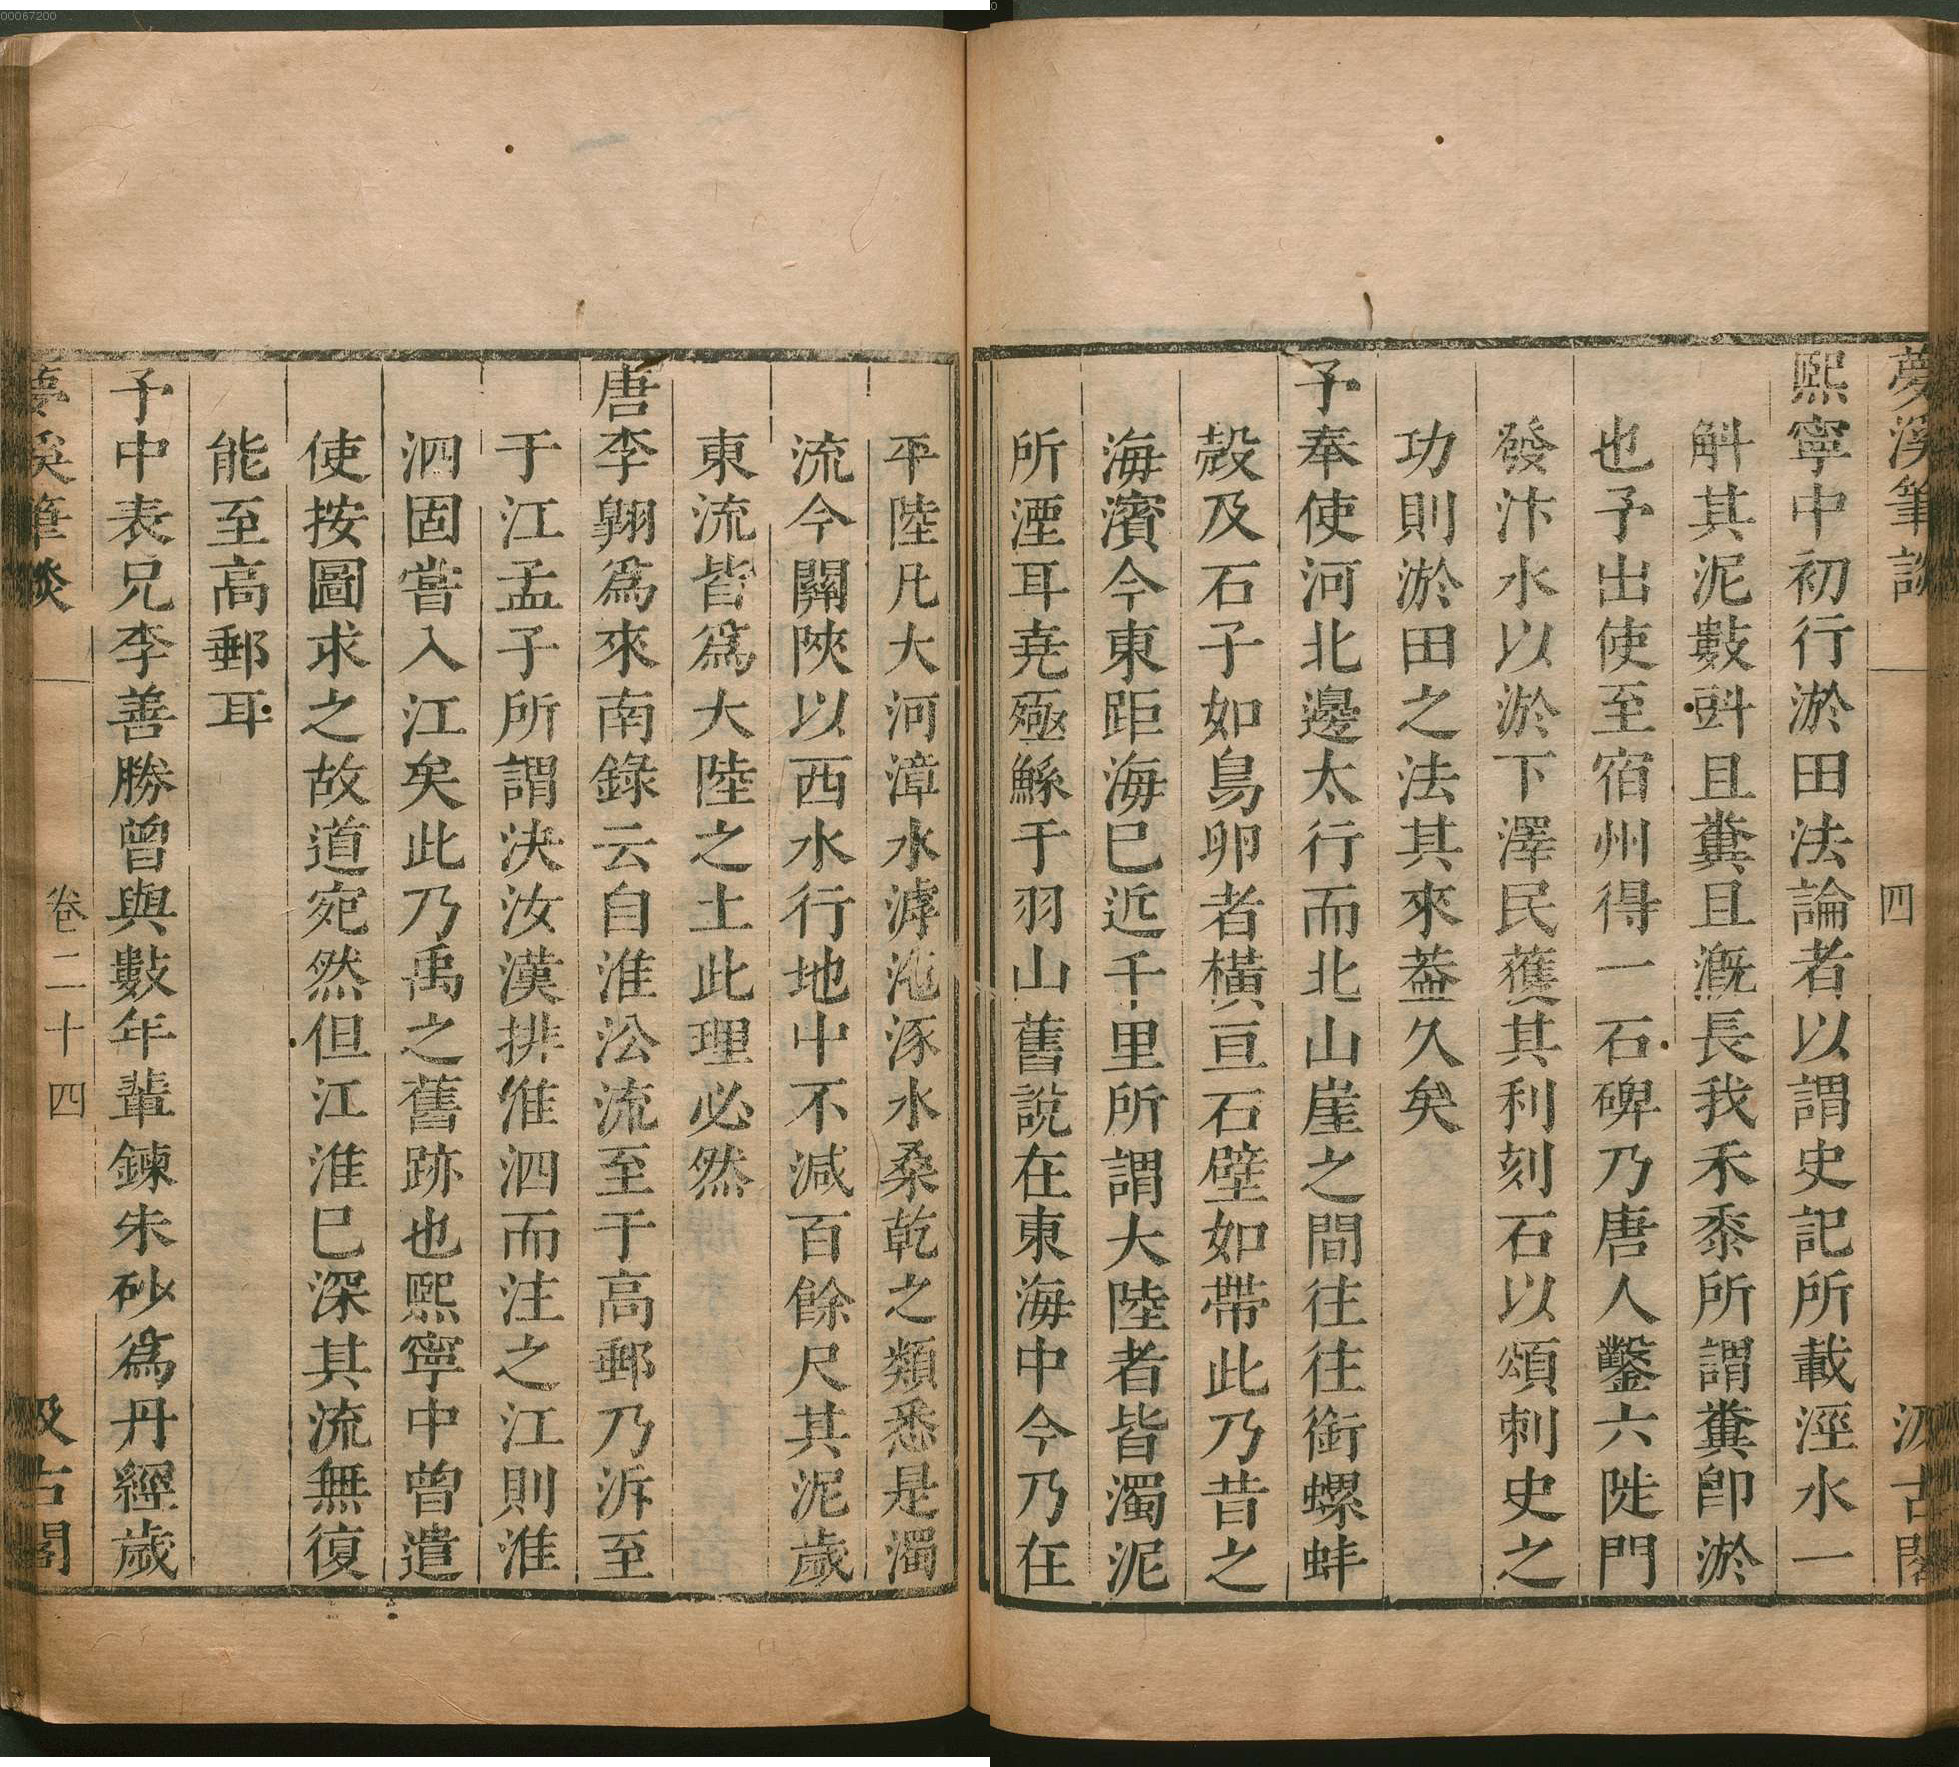 00067200
夢溪筆談
四
汲古閣
熙寧中初行淤田法論者以謂史記所載涇水一
斛其泥數㪷且糞且漑長我禾黍所謂糞卽淤
也予出使至宿州得一石碑乃唐人鑿六陡門
發汴水以淤下澤民獲其利刻石以頌刺史之
功則淤田之法其來葢久矣
予奉使河北邊太行而北山崖之間往往銜螺蚌
殼及石子如鳥卵者橫亘石壁如帶此乃昔之
海濱今東距海巳近千里所謂大陸者皆濁泥
所湮耳尭殛鯀于羽山舊說在東海中今乃在
平陸凡大河漳水滹沱涿水桑乾之類悉是濁
流今關陝以西水行地中不減百餘尺其泥歲
東流皆爲大陸之土此理必然
唐李翺爲來南錄云自淮沿流至于高郵乃泝至
于江孟子所謂決汝漢排淮泗而注之江則淮
泗固嘗入江矣此乃禹之舊跡也熙寧中曾遣
使按圖求之故道宛然但江淮巳深其流無復
能至高郵耳
予中表兄李善勝曾與數年輩鍊朱砂爲丹經歲
夢溪筆談
卷二十四
汲古閣